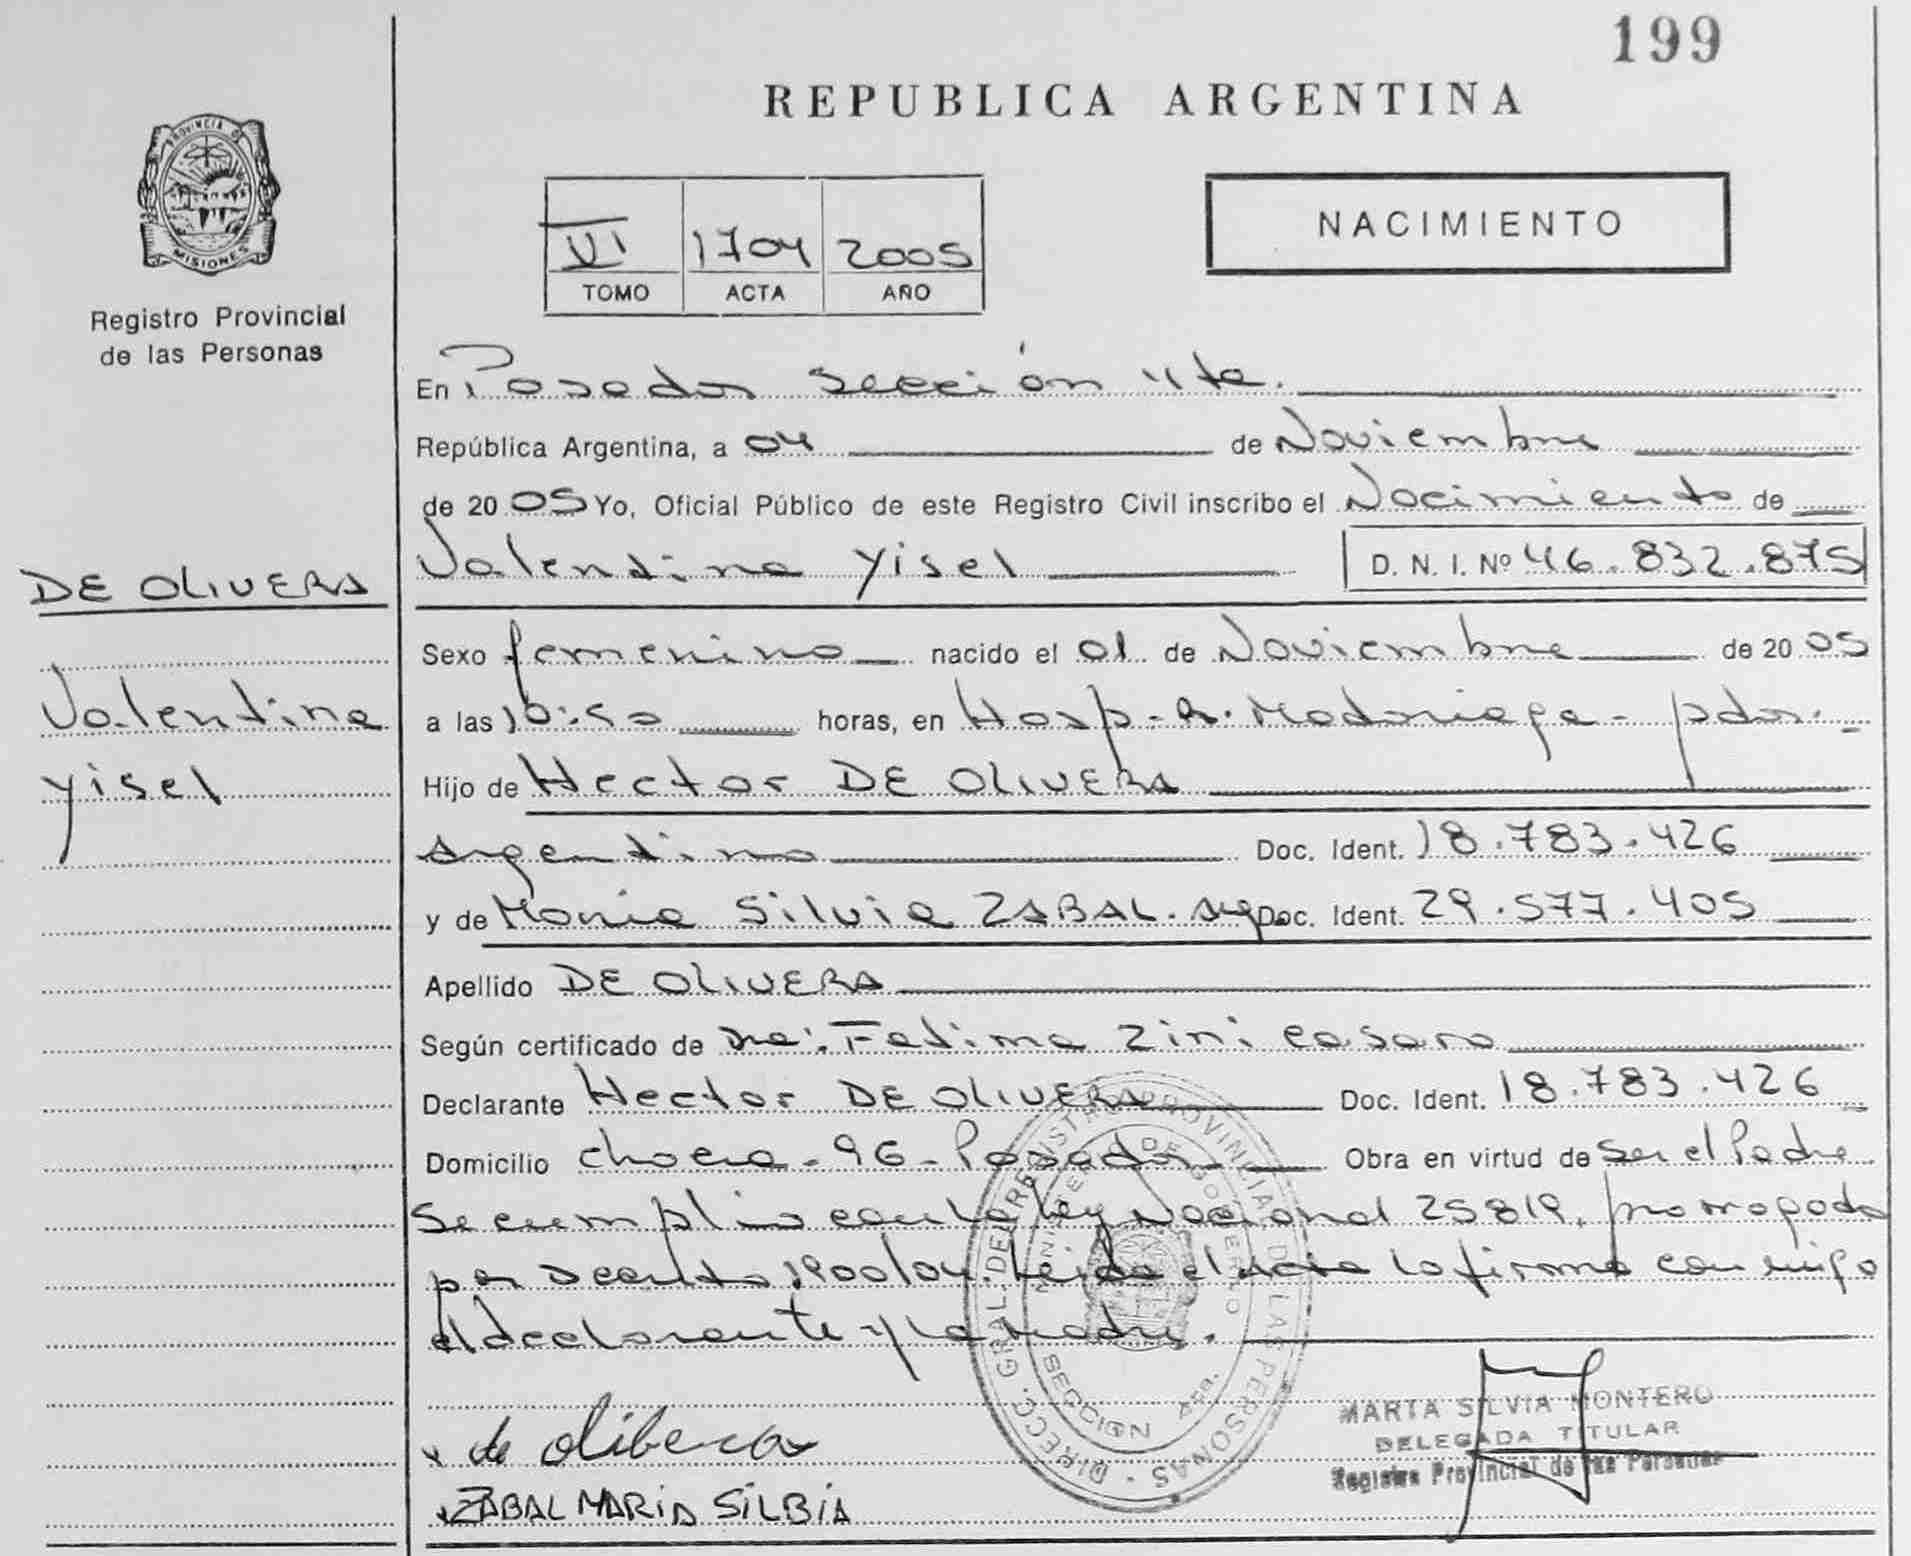 199
REPUBLICA ARGENTINA
PROVINCIA DE
MISIONES
Registro Provincial
de las Personas
NACIMIENTO
VI 1704 2005
TOMO ACTA AÑO
En Posadas Sección 4ta.
República Argentina, a 04 de Noviembre
de 2005 Yo, Oficial Público de este Registro Civil inscribo el Nacimiento de
DE OLIVERA
Valentina Yisel
Valentina Yisel D. N. I. Nº 46.832.875
Sexo femenino nacido el 01 de Noviembre de 2005
a las horas, en Hosp. R. Madariaga - pdas.
Hijo de Hector DE OLIVERA
Argentino Doc. Ident. 18.783.426
y de Maria Silvia ZABAL. Arg Doc. Ident. 29.577.405
Apellido DE OLIVERA
Según certificado de Dra. Fatima Zini Casaro
Declarante Hector DE OLIVERA Doc. Ident. 18.783.426
Domicilio chacra - 96 - Posadas Obra en virtud de Ser el Padre
Se cumplio con la Ley Nacional 25819, prorrogada
por Decreto 1900/04. Leida el acta la firma conmigo
el declarante y la madre.
de olibera
ZABAL MARIA SILBIA
DIRECC. GRAL. DEL REGISTRO PROVINCIAL DE LAS PERSONAS
MINISTERIO DE GOBIERNO
SECCION 4ta.
MARTA SILVIA MONTERO
DELEGADA TITULAR
Registro Provincial de las Personas